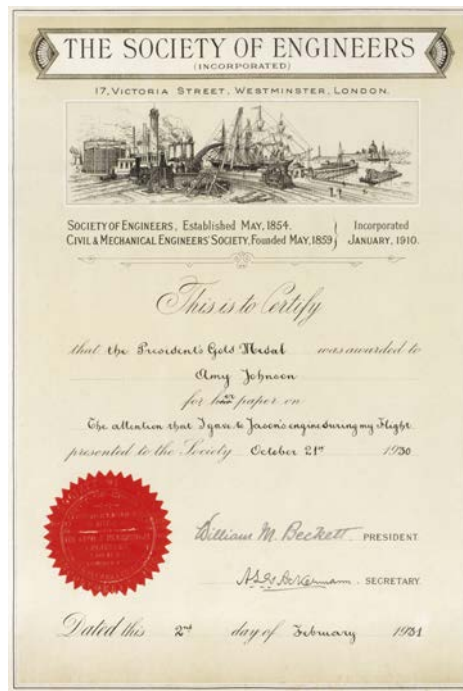 THE SOCIETY OF ENGINEERS
(INCORPORATED)
17, VICTORIA STREET, WESTMINSTER, LONDON.
SOCIETY OF ENGINEERS, Established MAY, 1854.
CIVIL & MECHANICAL ENGINEERS' SOCIETY, Founded MAY, 1859
Incorporated
JANUARY, 1910.
This is to Certify
that the President's Gold Medal was awarded to
Amy Johnson
for her paper on
The attention that I gave to Jason's engine during my Flight
presented to the Society October 21st 1930
William M. Beckett. PRESIDENT
Ackermann. SECRETARY
Dated this 2nd day of February 1931